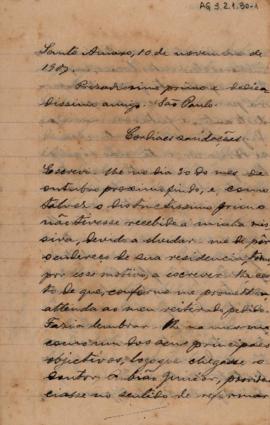 AG 3.2.1.30-1
Santo Amaro, 10 de novembro de
1909.
Presadissimo primo e dedica
dissimo amigo. São Paulo.
Cordiaes saudações.
Escrevi-lhe no dia 30 do mes de
outubro proximo findo, e, como
talvez o distinctissimo primo
não tivesse recebido a minha mis
siva, devido a
de sua residencia, torno,
por esse motivo, a escrever.
to de que, conforme me prometteu
attenda ao meu reiterado pedido.
Fazia lembrar-lhe na mesma
como um dos seus principaes
objectivos, logo que chegasse o
senhor Junior, provi
denciasse no sentido de reformar